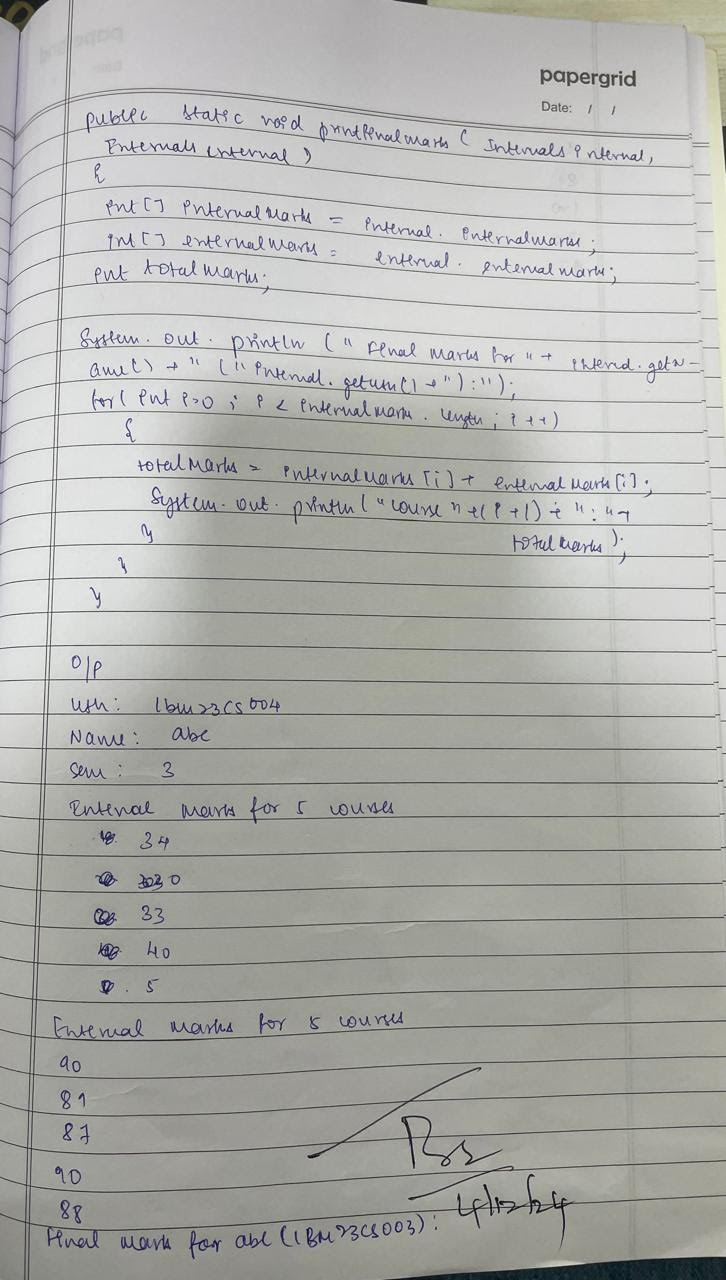 papergrid
Date: / /
public static void printFinalmarks ( Internals internal,
Externals external )
{
int [] internalMarks = internal. internalmarks;
int [] externalmarks = external. externalmarks;
int totalmarks;
System. out. println (" Final marks for " + internal. getN-
ame() + " (" internal. getusn() + ") : ");
for( int i=0 ; i < internalmarks . length ; i ++)
{
totalMarks = internalmarks [i] + externalMarks [i] ;
System. out. println ( " course " + ( i + 1) + " : " +
totalmarks ) ;
}
}
}
O/P
Usn: 1bm23CS004
Name: abc
Sem : 3
Internal marks for 5 courses
34
30
33
40
5
External marks for 5 courses
90
81
87
90
88
4/12/24
Final mark for abc (1BM23CS003) :